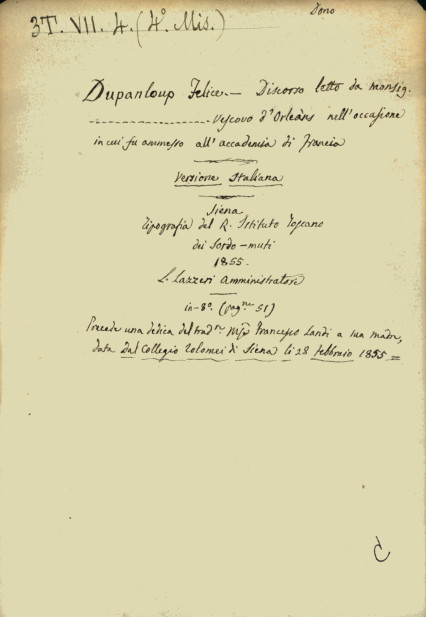 Dono
3T. VII. 4. (4.° Mis.)
Dupanloup Felice. — Discorso letto da monsig.
Vescovo d'Orleàns nell'occasione
in cui fu ammesso all'accademia di Francia
Versione Italiana
Siena
Tipografia del R. Istituto Toscano
dei Sordo-muti
1855.
L. Lazzeri amministratore
in-8.° (pag.ne 51)
Precede una dedica del trad.re Francesco Landi a sua madre,
data dal Collegio Tolomei di Siena li 28 febbraio 1855 =